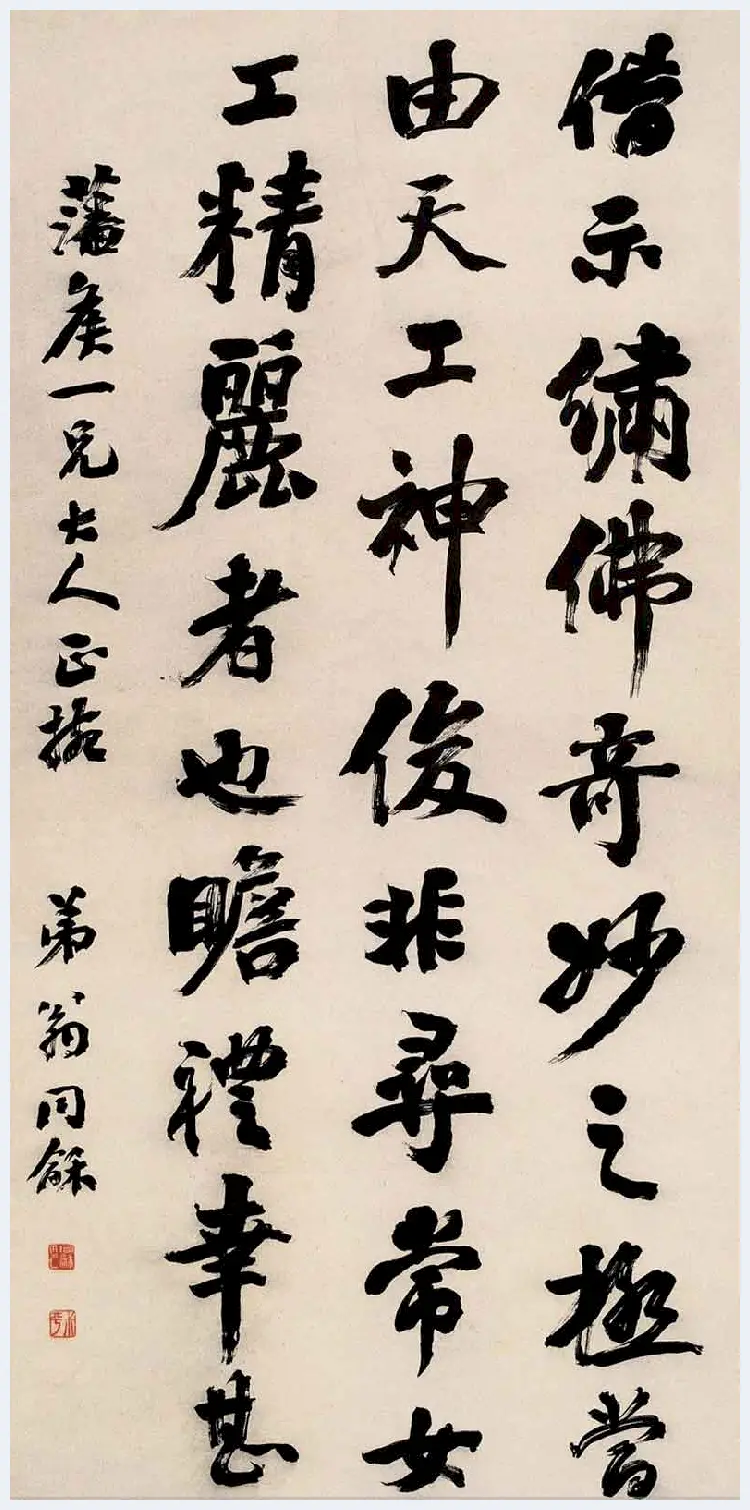 借示繡佛奇妙之極當
由天工神俊非尋常女
工精麗者也瞻禮幸甚
藩侯一兄大人正掞
弟翁同龢